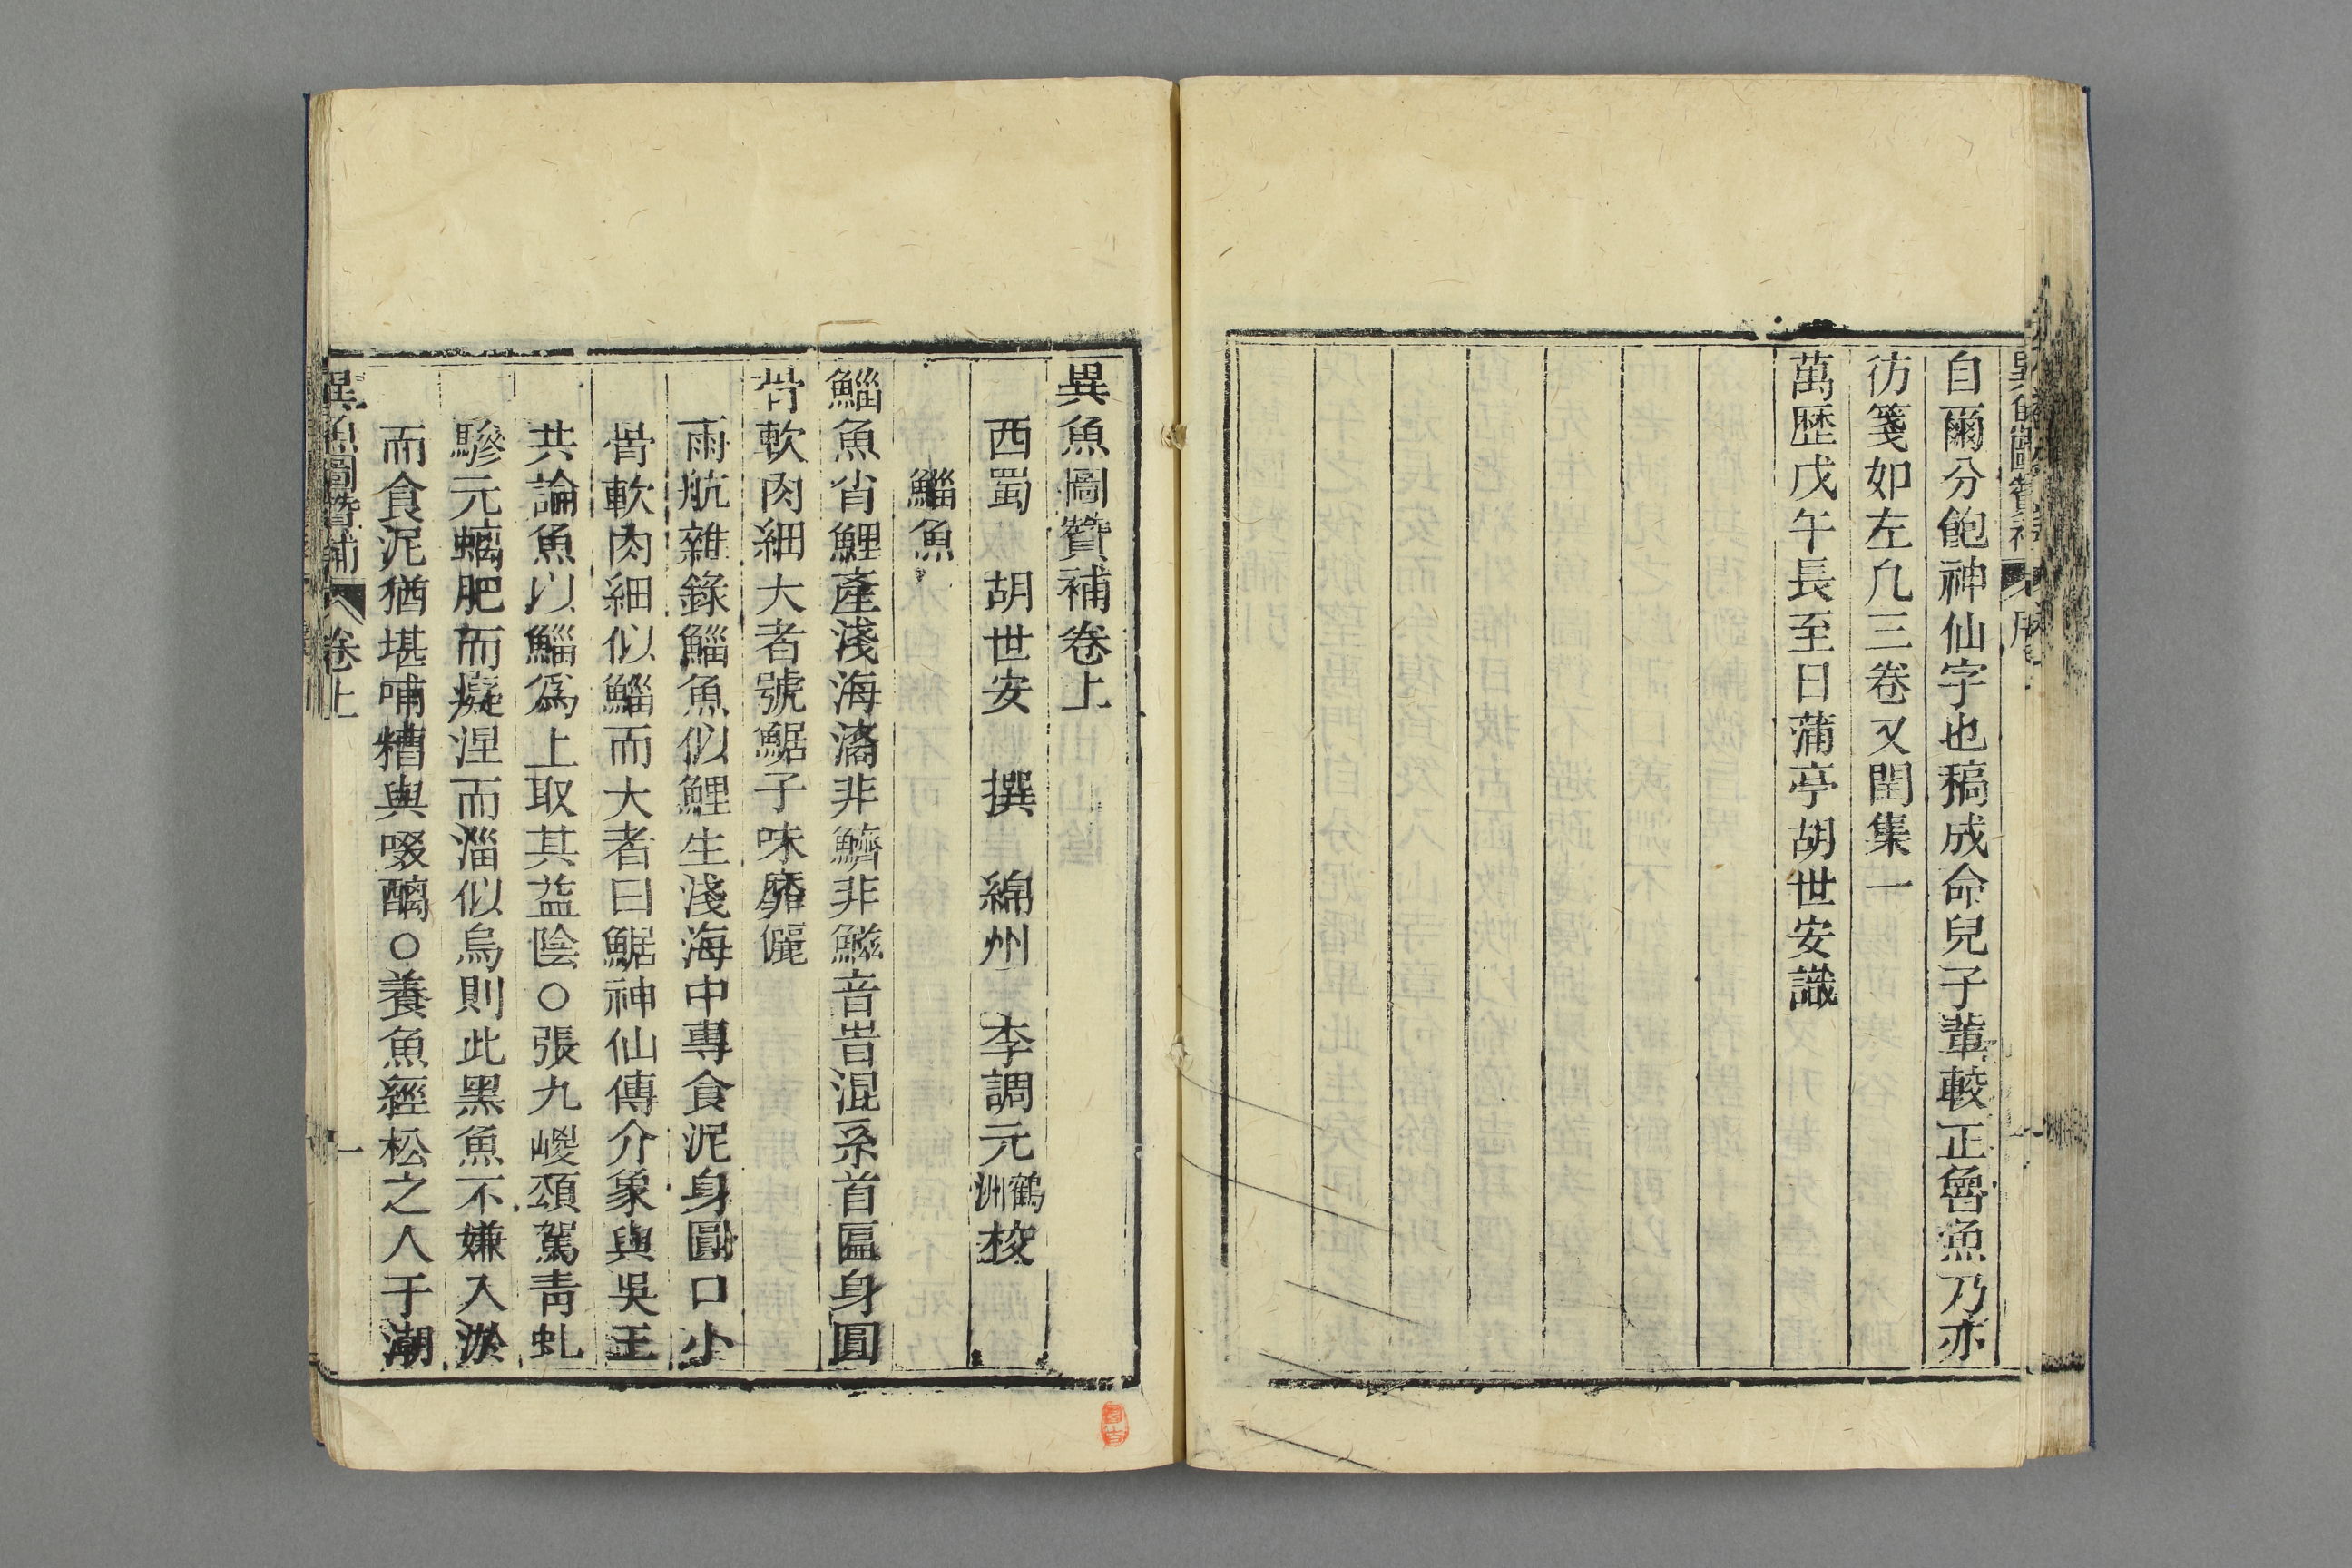 自爾分飽神仙字也稿成命兒子輩較正魯魚乃亦
彷箋如左凢三卷又閏集一
萬歷戊午長至日蒲亭胡世安識
異魚圖贊補卷上
西蜀 胡世安 撰 綿州 李調元 鶴洲 校
鯔魚
鯔魚肖鯉產淺海潏非鱭非鰦音訾混系首匾身圓
骨軟肉細大者號鯃子味靡儷
雨航雜錄鯔魚似鯉生淺海中專食泥身圓口小
骨軟肉細似鯔而大者曰鮔神仙傳介象與吳王
共論魚以鯔為上取其益陰○張九嵕頌駕青虬
驂元螭肥而癡涅而淄似烏則此黑魚不嫌入淤
而食泥猶堪哺糟與啜醨○養魚經松之人于潮
異魚圖贊補 卷上 一